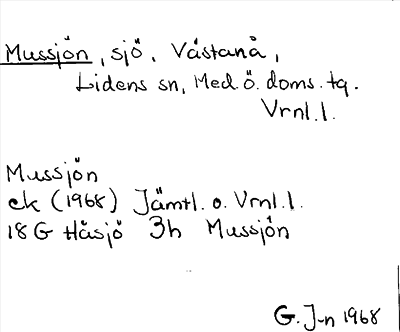 Mussjön, sjö, Västanå,
Lidens sn, Med.ö.doms.tg.
Vrnl.l.
Mussjön
ek (1968) Jämtl. o. Vrnl.l.
18G Håsjö 3h Mussjön
G. J-n 1968